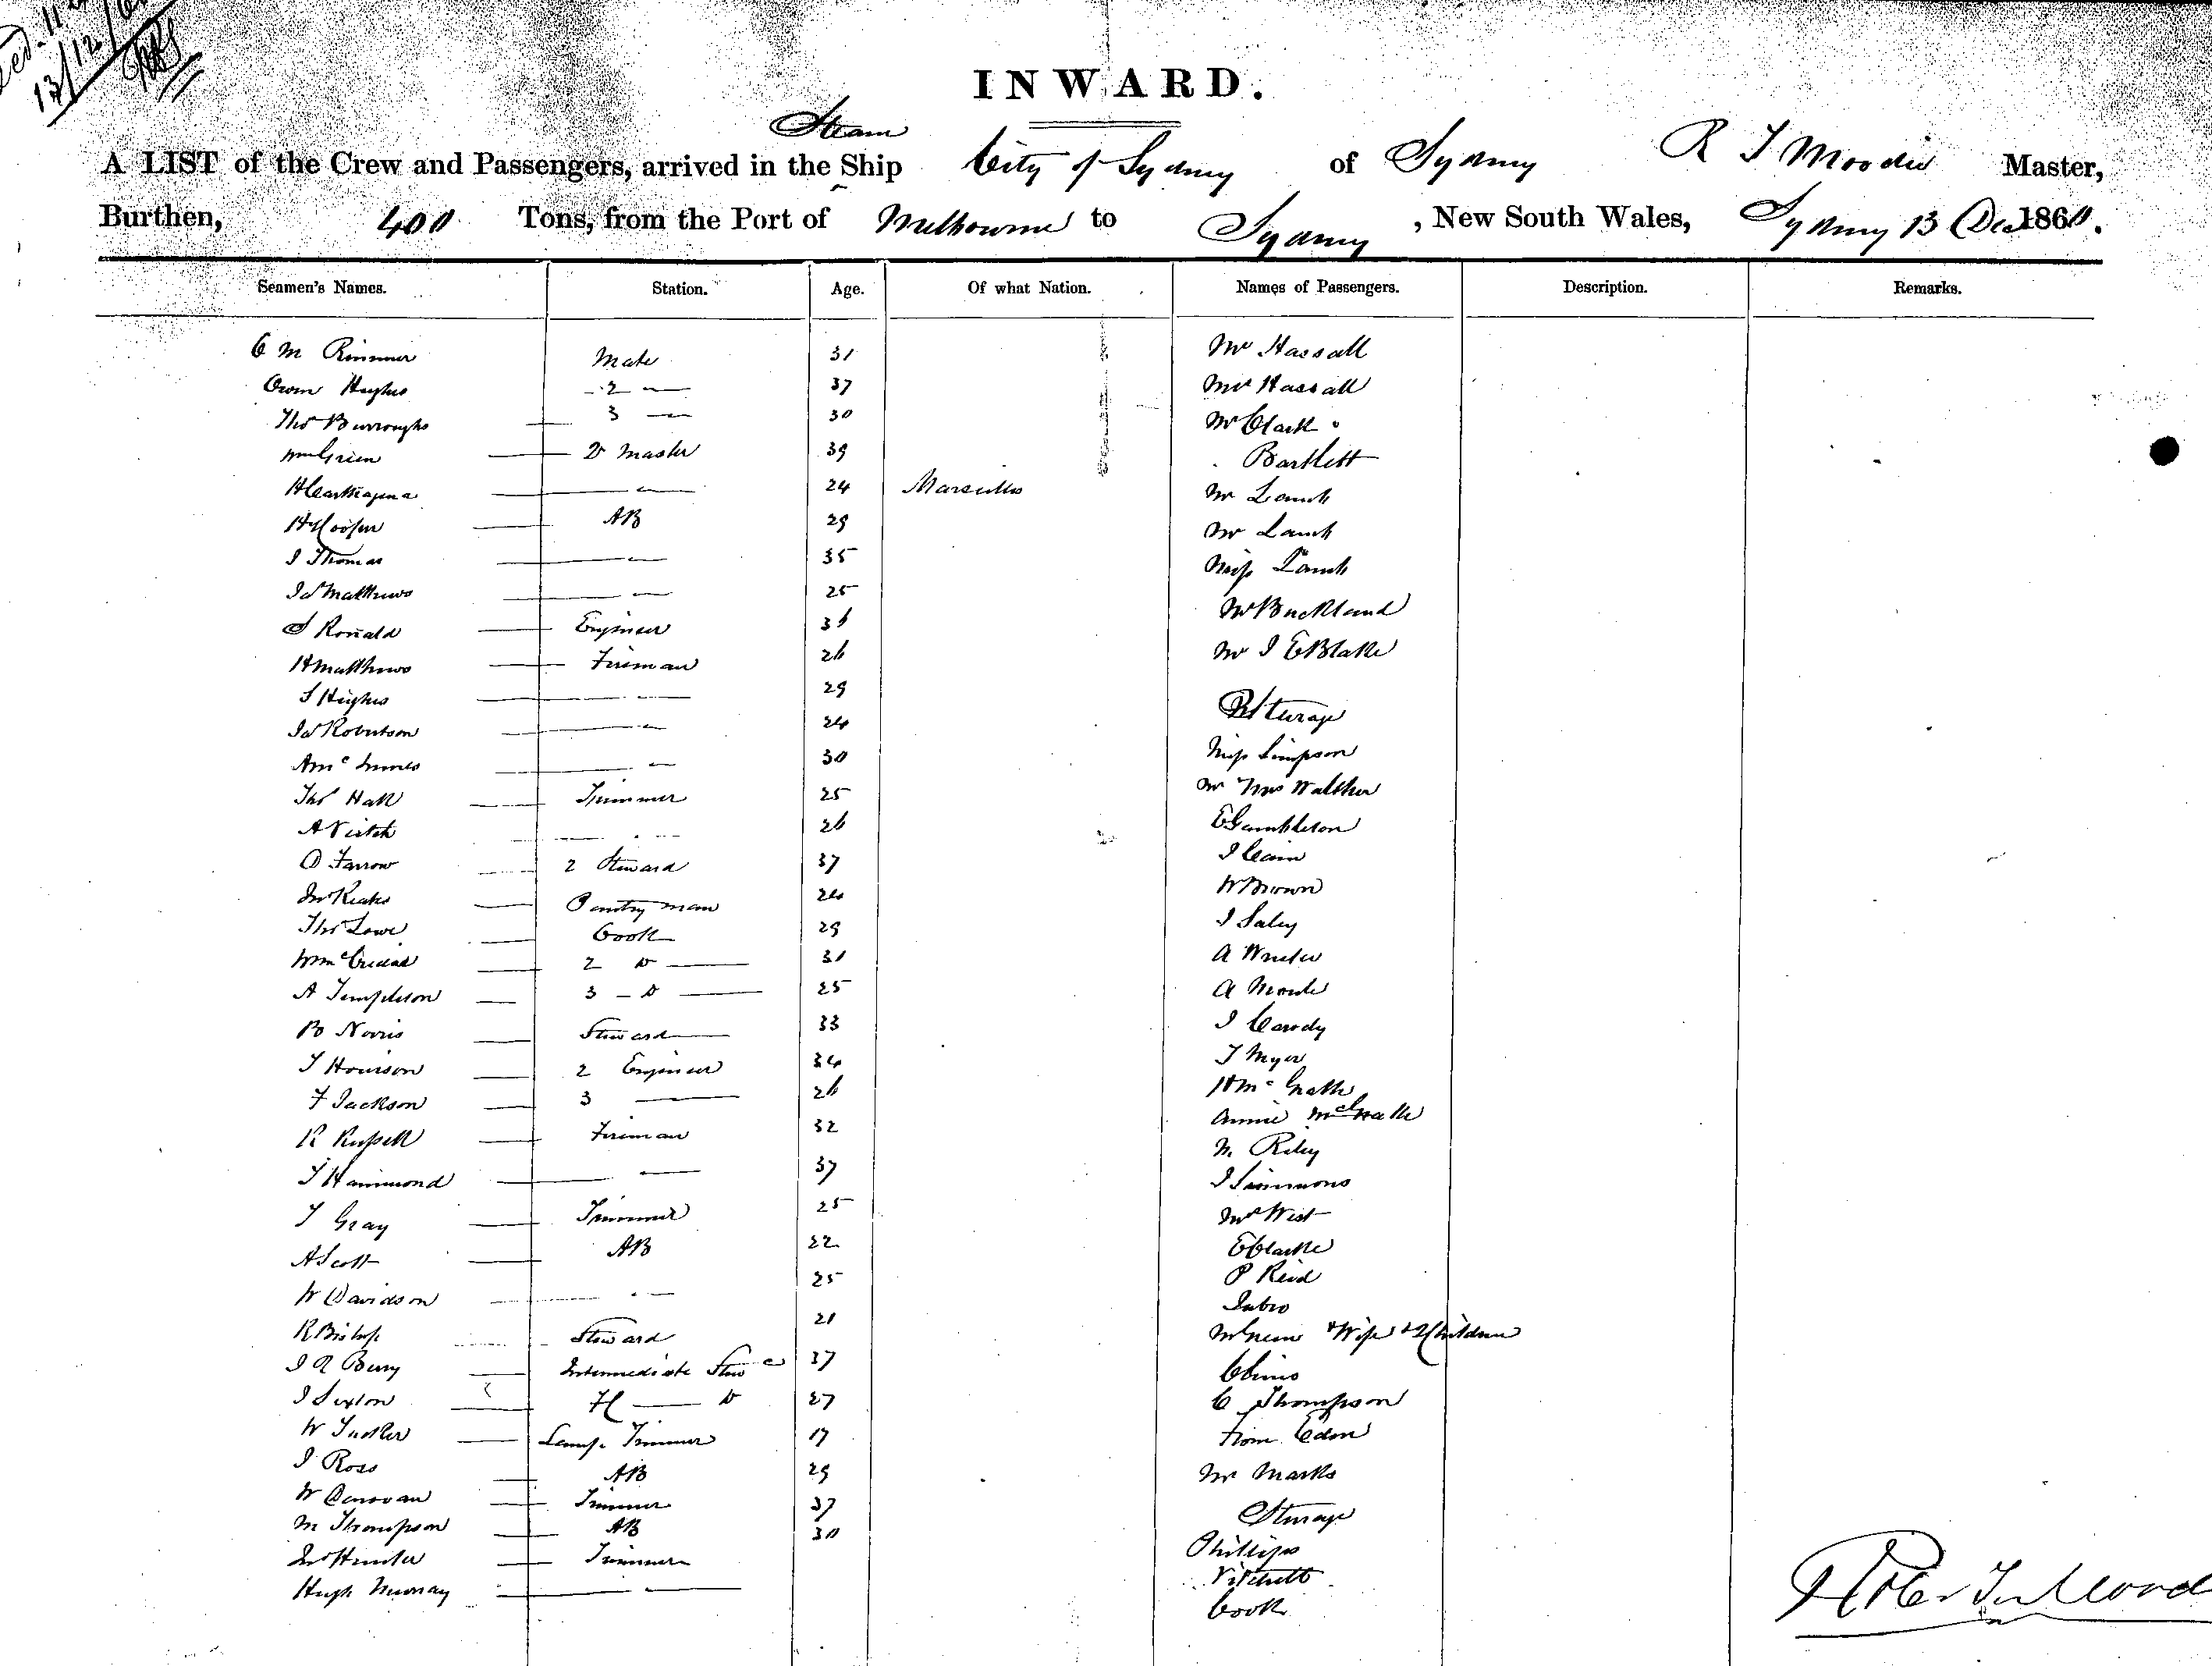 13/12/60
INWARD.
Steam
A LIST of the Crew and Passengers, arrived in the Ship City of Sydney of Sydney R T Moodie Master,
Burthen, 400 Tons, from the Port of Melbourne to Sydney, New South Wales, Sydney 13 Dec 1860.
Seamen's Names. Station. Age. Of what Nation. Names of Passengers. Description. Remarks.
C M Rimmer Mate 31 Mr Hassall
Owen Hughes 2 — 37 Mrs Hassall
Thos Burroughs 3 — 30 Mr Clark
Wm Green — Qr Master 39 Bartlett
H Carthagena — 24 Marseilles Mr Lamb
H Cooper — AB 29 Mr Lamb
J Thomas — 35 Miss Lamb
Jas Matthews — 25 Mr Buckland
S Ronald — Engineer 36 Mr J E Blake
H Matthews — Fireman 26
S Hughes — 29 Steerage
Jas Robertson — 24 Miss Simpson
A McInnes — 30 Mr Mrs Walther
Thos Hall — Trimmer 25 E Gambleton
A Veitch — 26 J Cain
D Farrow — 2 Steward 37 W Brown
Jno Keats — Pantry man 24 J Saley
Thos Lowe — Cook 29 A
Wm — 2 Do — 31 A
A Templeton — 3 - Do — 25 J Carody
B Norris — Steward 33 T Myer
T Hourson — 2 Engineer 34 H McGrath
F Jackson — 3 — 26 Annie McGrath
R Russell — Fireman 32 M Riley
T Hammond — 37 J Simmons
T Gray — Trimmer 25 Mrs West
A Scott — AB 22 E Clarke
W Davidson — 25 P Reid
R Bishop — Steward 21 Mr Green & Wife & 2 Children
J R Berry — Intermediate Stew 37
J Sexton — F C — Do 27 C Thompson
W — Lamp Trimmer 17 From Eden
J Ross — AB 29 Mr Marks
W Donovan — Trimmer 37 Steerage
M Thompson — AB 30 Phillips
Jno Hunter — Trimmer
Hugh Murray — Cook